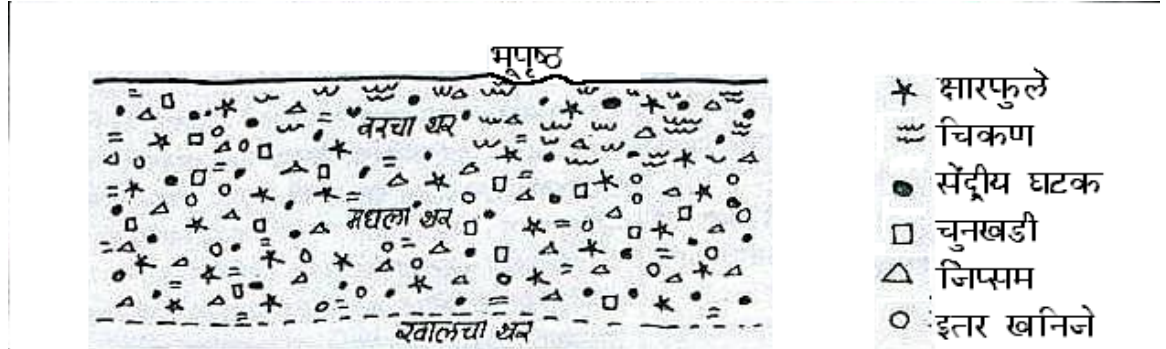 भूपृष्ठ
वरचा थर
मधला थर
खालचा थर
क्षारफुले
चिकण
सेंद्रीय घटक
चुनखडी
जिप्सम
इतर खनिजे